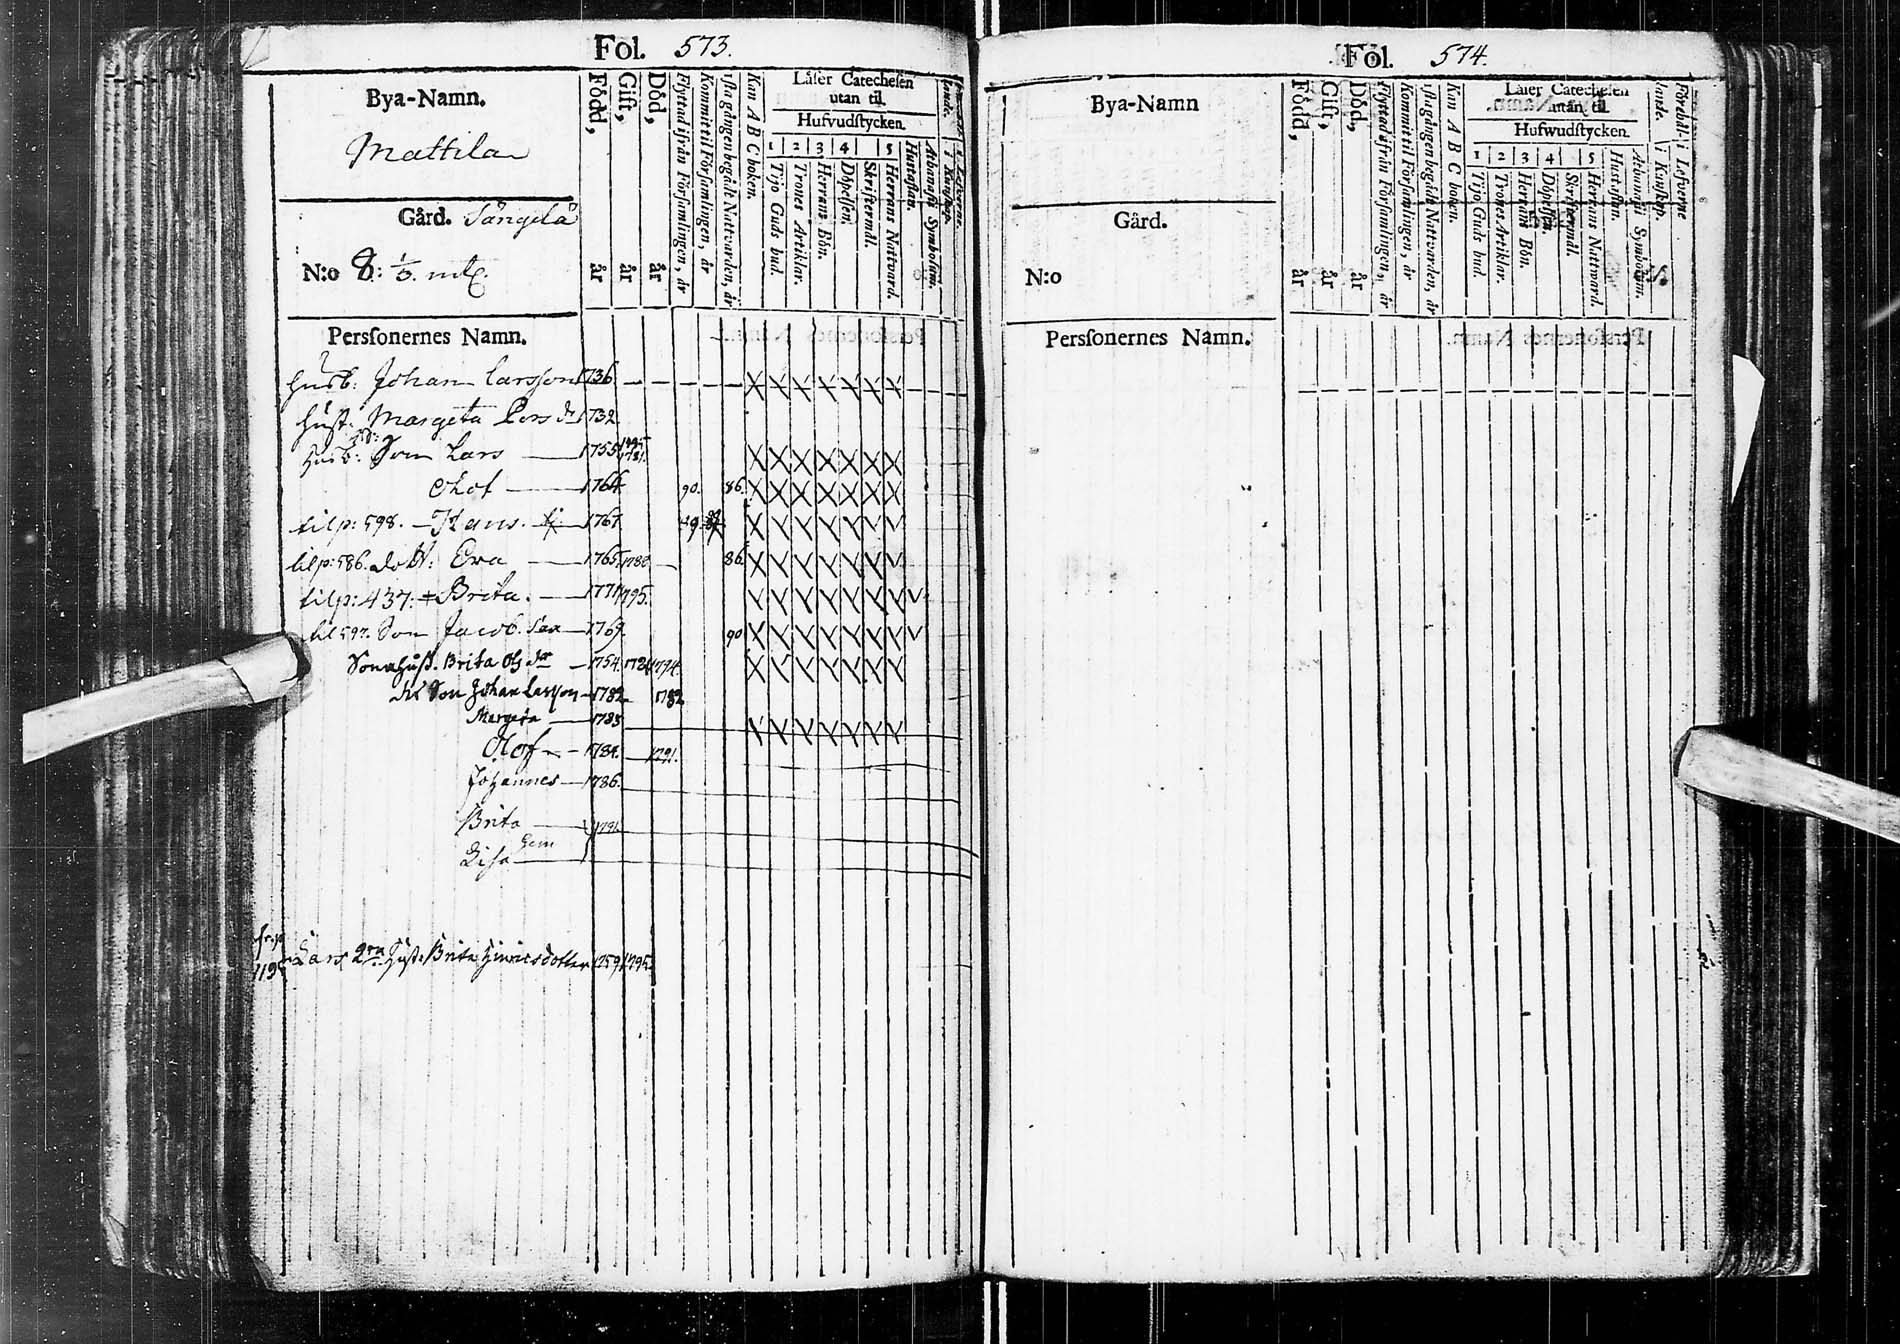 Fol. 573.
Bya-Namn.
Mattila
Gård. Sångelä
N:o 8: 1/3. mtl.
Född, år
Gift, år
Död, år
Flyttad ifrån Församlingen, år
Kommit til Församlingen, år
första gången begådt Nattvarden, år
Kan A B C boken.
Låser Catechesen
utan til.
Hufvudstycken.
1 2 3 4 5
Tijo Guds bud.
Trones Artiklar.
Herrans Bön.
Döpelsen.
Skriftermål.
Herrans Nattvard.
Hustaflan.
Athanasii Symbolum.
Personernes Namn.
husb: Johan Larsson 1736.
hust. Margeta Persdr 1732.
husb: Son Lars 1755 1795 1781.
Olof 1764 90. 86.
til p: 598. Hans. 1767 89.
til p: 586. dott: Eva 1765. 1788. 86.
til p: 437: Brita. 1771 1795.
til 597. Son Jacob. 1769. 90
Sonahust. Brita Ols dotr 1754. 1781 1794.
Son Johan Larsson 1782 1782
Margeta 1783
Olof 1784. 1791.
Johannes 1786.
Brita 1791.
Gem
Lisa
fr. p
119
Lars 2ra Hust. Brita Hinricsdotter 1759 1795.
Fol. 574.
Bya-Namn
Gård.
N:o
Född, år
Gift, år
Död, år
Flyttad ifrån Församlingen, år
Kommit til Församlingen, år
första gången begådt Nattvarden, år
Kan A B C boken.
Låser Catechesen
utan til.
Hufwudstycken.
1 2 3 4 5
Tijo Guds bud.
Trones Artiklar.
Herrans Bön.
Döpelsen.
Skriftermål.
Herrans Nattvard.
Hustaflan.
Athanasii Symbolum.
Förhållande. i Kunskp.
i Lefverne
Personernes Namn.